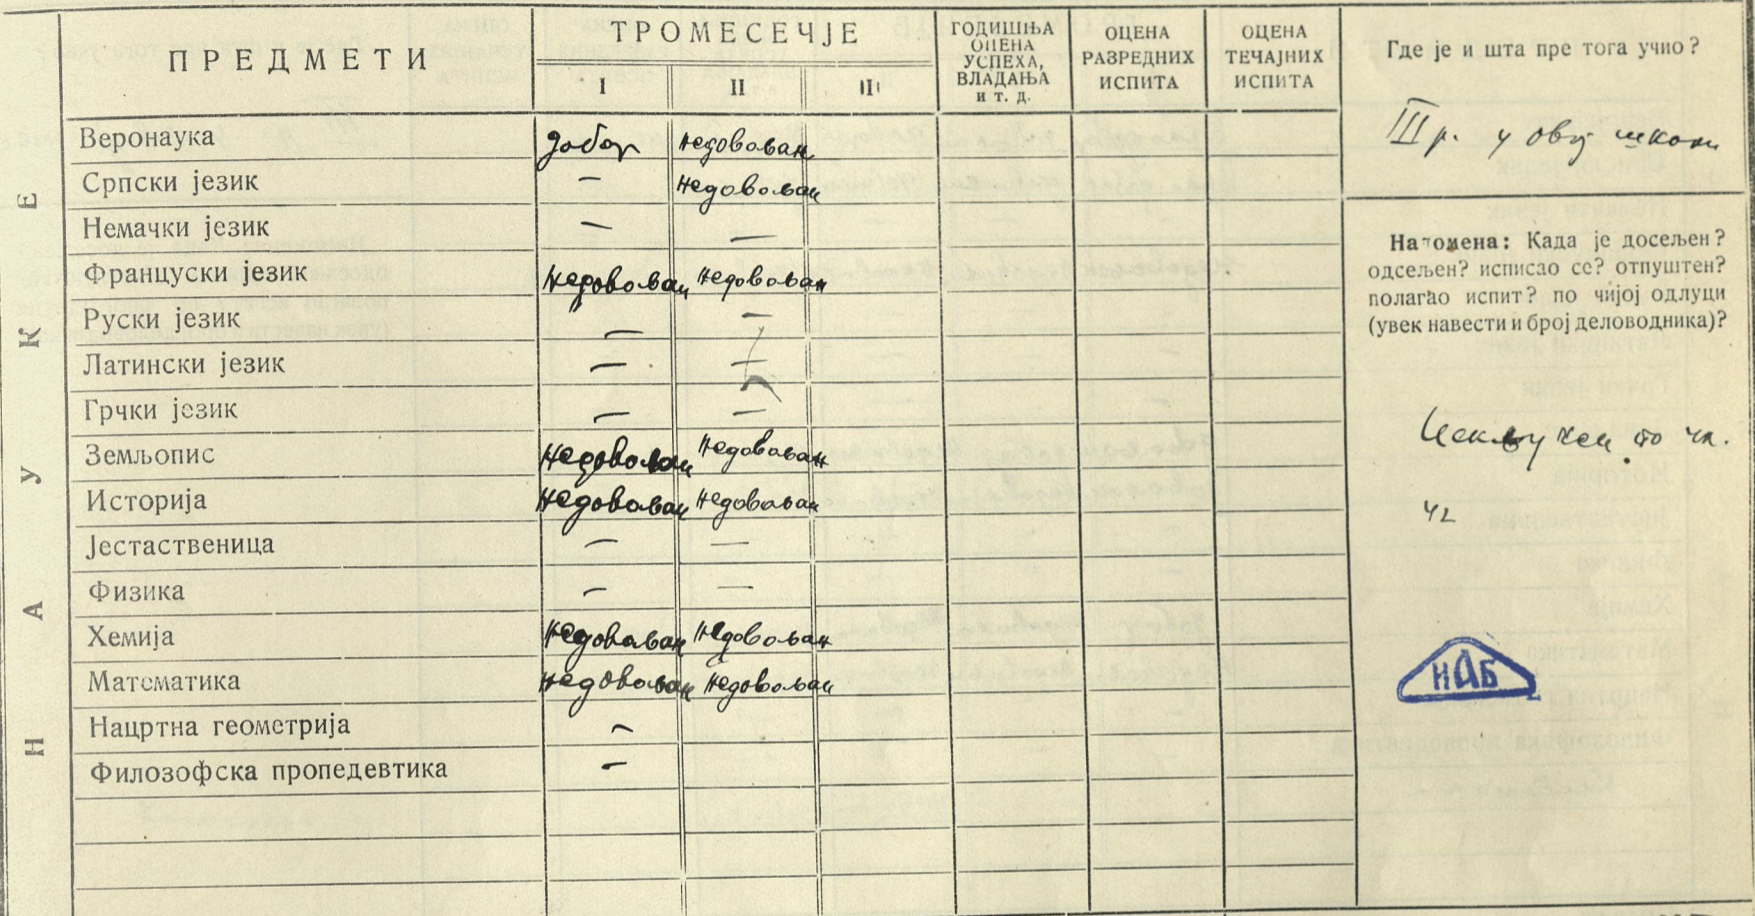 ПРЕДМЕТИ
ТРОМЕСЕЧЈЕ
I II III
ГОДИШЊА
ОЦЕНА
УСПЕХА,
ВЛАДАЊА
и т. д.
ОЦЕНА
РАЗРЕДНИХ
ИСПИТА
ОЦЕНА
ТЕЧАЈНИХ
ИСПИТА
Где је и шта пре тога учио?
III р. у овој школи
НАУКЕ
Веронаука добар недовољан
Српски језик — недовољан
Немачки језик — —
Француски језик недовољан недовољан
Руски језик — —
Латински језик — —
Грчки језик — —
Земљопис недовољан недовољан
Историја недовољан недовољан
Јестаственица — —
Физика — —
Хемија недовољан недовољан
Математика недовољан недовољан
Нацртна геометрија —
Филозофска пропедевтика —
Напомена: Када је досељен?
одсељен? исписао се? отпуштен?
полагао испит? по чијој одлуци
(увек навести и број деловодника)?
Искључен по чл.
42
НАБ